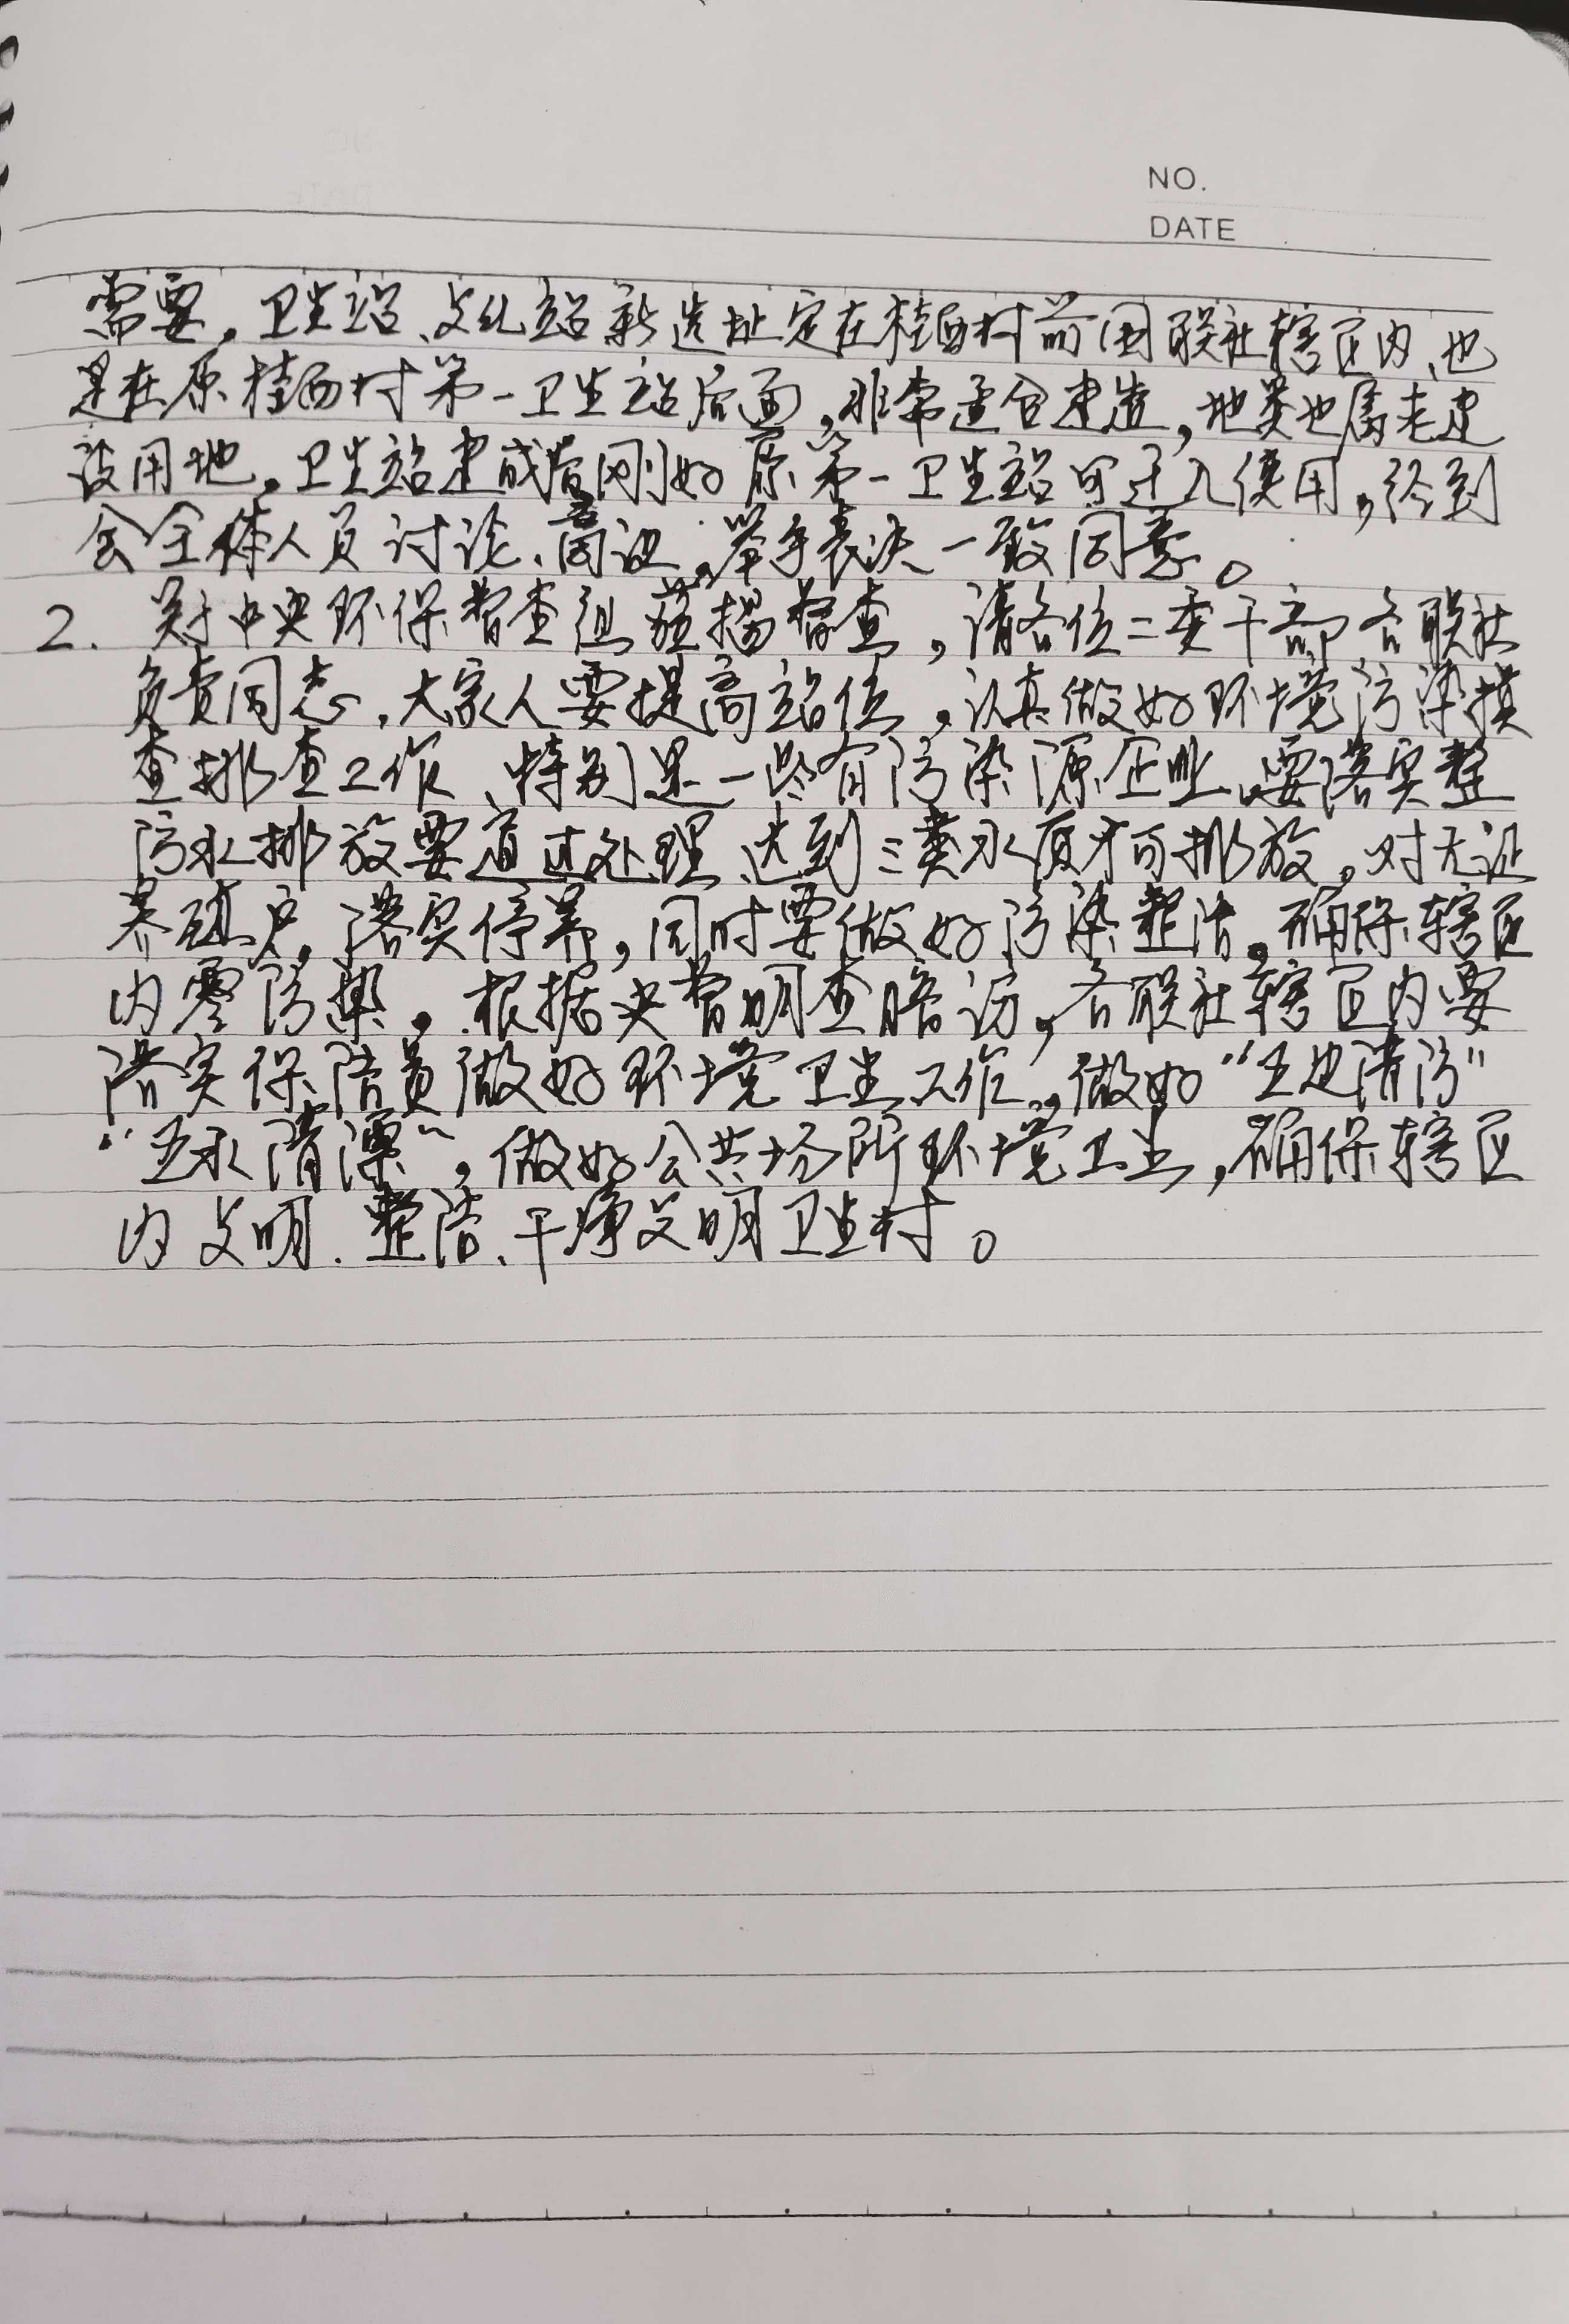 NO.
DATE
需要。卫生站、文化站新选址定在桂西村前围联社辖区内、也
是在原桂西村第一卫生站后面，非常适合建造，地类也属老建
设用地。卫生站建成后刚好原第一卫生站可迁入使用。经到
会全体人员讨论、商议，举手表决一致同意。
2. 关于中央环保督查组莅揭督查，请各位二委干部各联社
负责同志，大家人要提高站位，认真做好环境污染摸
查排查工作、特别是一些有污染源企业、要落实整
污水排放要道过处理、达到三类水质才可排放。对无证
养殖户，落实停养，同时要做好污染整治，确保辖区
内零污染。根据央督明查暗访，各联社辖区内要
落实保洁员做好环境卫生工作，做好“五边清污”
“五水清漂”，做好公共场所环境卫生，确保辖区
内文明、整洁、干净文明卫生村。